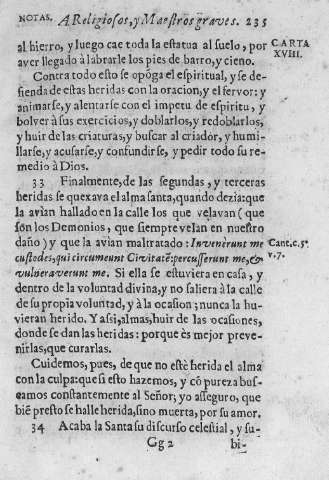 NOTAS. A Religiosos, y Maestros graves. 235
al hierro, y luego cae toda la estatua al suelo, por CARTA
aver llegado à labrarle los pies de barro, y cieno. XVIII.
Contra todo esto se opóga el espiritual, y se de-
fienda de estas heridas con la oracion, y el fervor: y
animarse, y alentarse con el impetu de espiritu, y
bolver à sus exercicios, y doblarlos, y redoblarlos,
y huir de las criaturas, y buscar al criador, y humi-
llarse, y acusarse, y confundirse, y pedir todo su re-
medio à Dios.
33 Finalmente, de las segundas, y terceras
heridas se quexava el alma santa, quando dezia: que
la avian hallado en la calle los que velavan (que
son los Demonios, que siempre velan en nuestro
daño) y que la avian maltratado: Invenerunt me Cant. c. 5.
custodes, qui circumeunt Civitatē: percusserunt me, & v. 7.
vulneraverunt me. Si ella se estuviera en casa, y
dentro de la voluntad divina, y no saliera à la calle
de su propia voluntad, y à la ocasion; nunca la hu-
vieran herido. Y assi, almas, huir de las ocasiones,
donde se dan las heridas: porque ès mejor preve-
nirlas, que curarlas.
Cuidemos, pues, de que no estè herida el alma
con la culpa: que si esto hazemos, y cō pureza bus-
camos constantemente al Señor; yo asseguro, que
biē presto se halle herida, sino muerta, por su amor.
34 Acaba la Santa su discurso celestial, y su-
Gg 2 bi-